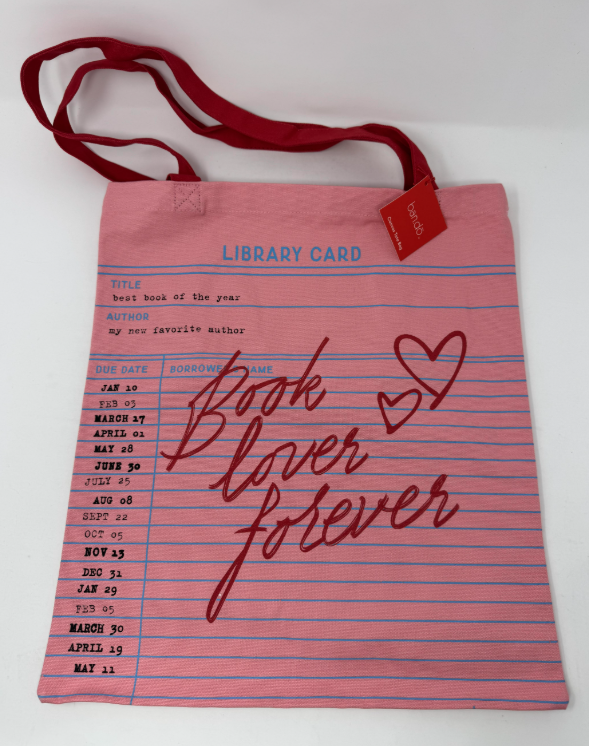 ban.dō.
Canvas Tote Bag
LIBRARY CARD
TITLE
best book of the year
AUTHOR
my new favorite author
DUE DATE BORROWER'S NAME
JAN 10
FEB 03
MARCH 17
APRIL 01
MAY 28
JUNE 30
JULY 25
AUG 08
SEPT 22
OCT 05
NOV 13
DEC 31
JAN 29
FEB 05
MARCH 30
APRIL 19
MAY 11
Book
lover
forever